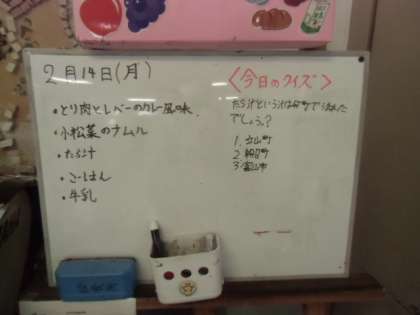 2月14日(月)
・とり肉とレバーのカレー風味
・小松菜のナムル
・たら汁
・ごはん
・牛乳
〈今日のクイズ〉
たら汁という汁は何町で
でしょう?
1. 立山町
2 朝日町
3 富山市